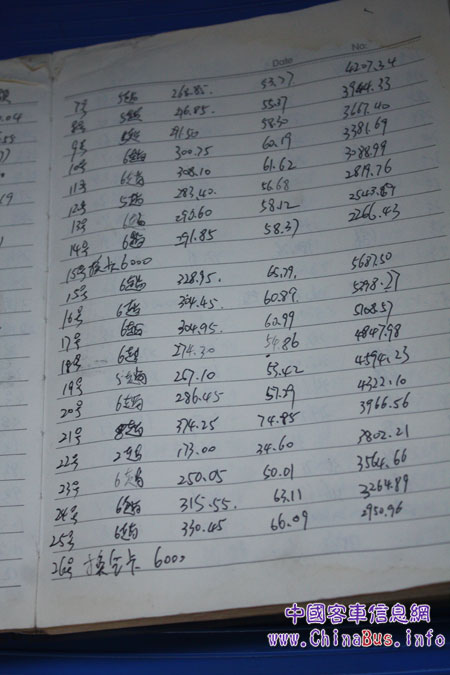 Date No.
7号 5趟 266.85. 53.37 4207.34
8号 5趟 3944.33
9号 291.50 58.30 3667.40
10号 6趟 300.75 60.19 3381.69
11号 6趟 308.10 61.62 3088.99
12号 5趟 283.40 56.68 2819.76
13号 290.60 58.12 2543.89
14号 6趟 291.85 58.37 2266.43
15号换卡6000
15号 6趟 328.95. 65.79 5687.50
16号 6趟 304.45 60.89 5398.27
17号 6趟 304.95 60.99 5108.57
18号 6趟 274.30 54.86 4847.98
19号 5趟 267.10 53.42 4594.23
20号 6趟 286.45 57.29 4322.10
21号 8趟 374.25 74.85 3966.56
22号 2趟 173.00 34.60 3802.21
23号 6趟 250.05 50.01 3564.66
24号 6趟 315.55. 63.11 3264.89
25号 6趟 330.45 66.09 2950.96
26号 换 卡 6000
中國客車信息網
www.ChinaBus.info